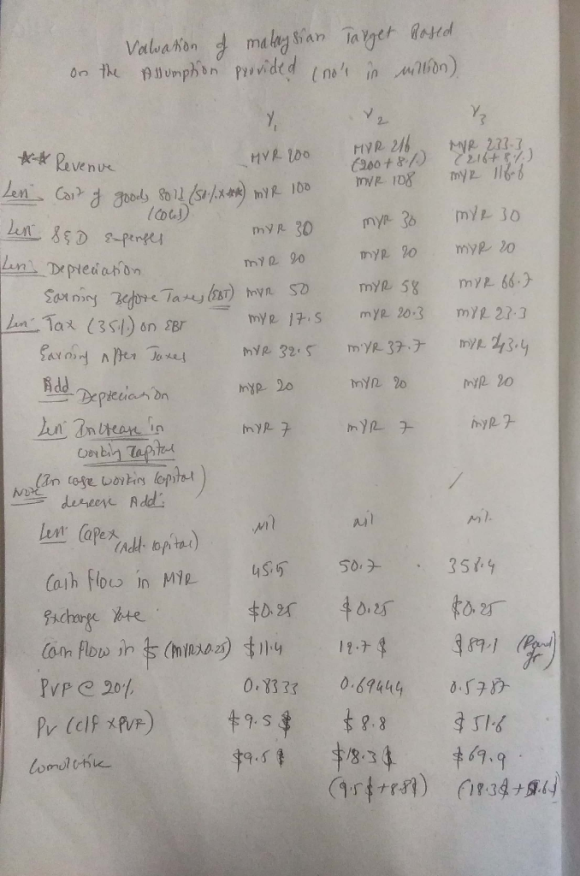 Valuation of malaysian Target Based
on the Assumption provided (no's in million)
Y1 Y2 Y3
** Revenue MYR 200 MYR 216 MYR 233.3
(200+8%) (216+8%)
Less: Cost of goods sold (50% x **) MYR 100 MYR 108 MYR 116.6
(COGS)
Less: S&D Expenses MYR 30 MYR 30 MYR 30
Less: Depreciation MYR 20 MYR 20 MYR 20
Earning Before Taxes (EBT) MYR 50 MYR 58 MYR 66.7
Less: Tax (35%) on EBT MYR 17.5 MYR 20.3 MYR 23.3
Earning After Taxes MYR 32.5 MYR 37.7 MYR 43.4
Add Depreciation MYR 20 MYR 20 MYR 20
Less: Increase in MYR 7 MYR 7 MYR 7
working capital
(In case working capital)
Note decrease Add:
Less: Capex Nil nil nil
(Add. capital)
Cash flow in MYR 45.5 50.7 356.4
Exchange rate $0.25 $0.25 $0.25
Cash flow in $ (MYR x 0.25) $11.4 12.7 $ $89.1
PVF @ 20% 0.8333 0.69444 0.5787
PV (C/F x PVF) $9.5 $ $8.8 $51.6
Cumulative $9.5 $ $18.3 $ $69.9
(9.5$+8.8$) (18.3$+51.6$)